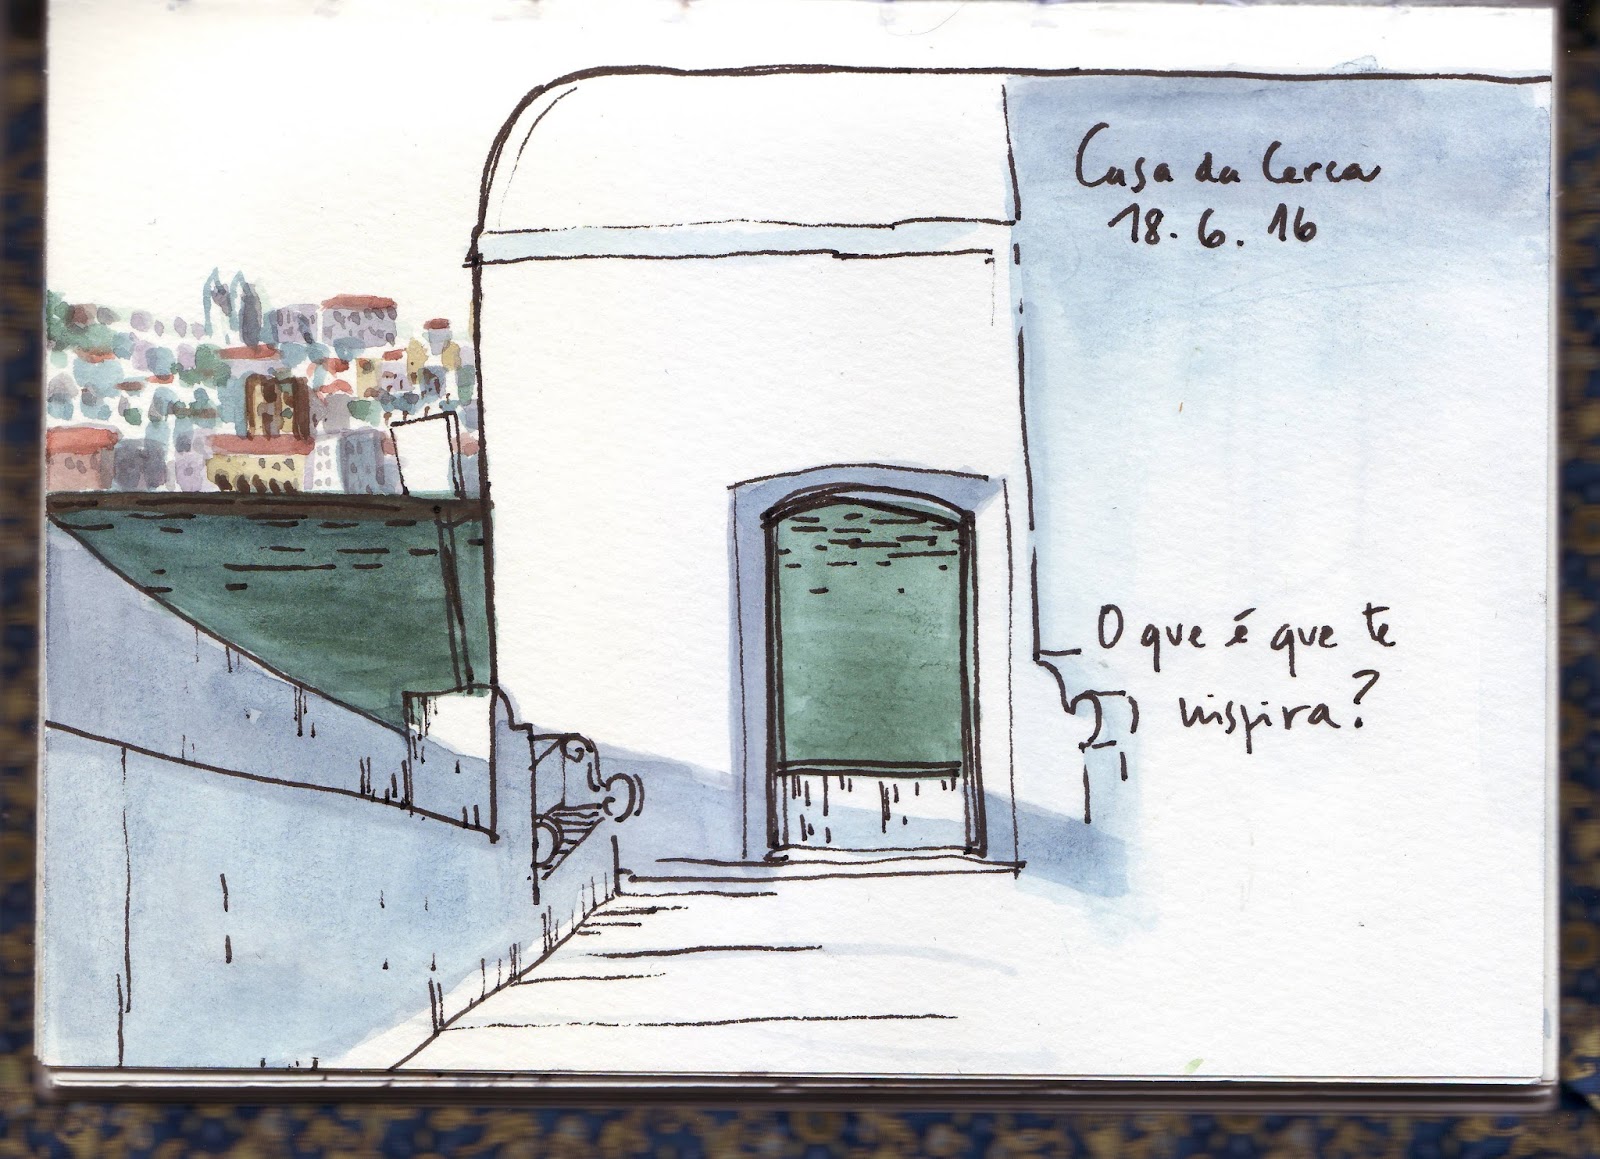 Casa da Cerca
18.6.16
O que é que te
inspira?